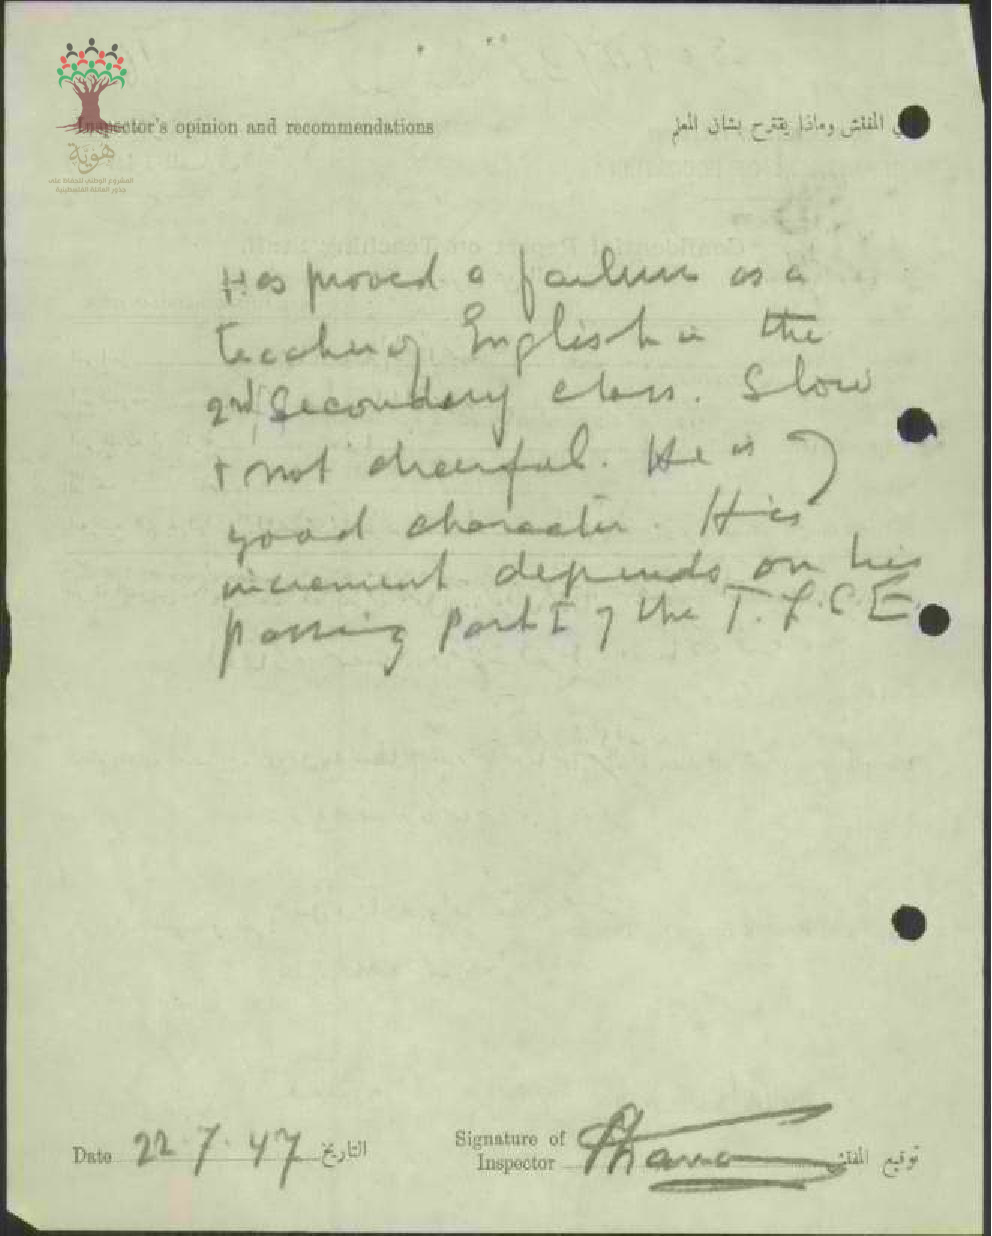 Inspector's opinion and recommendations
المفتش وماذا يقترح بشان المعلم
هوية
المشروع الوطني للحفاظ على
جذور العائلة الفلسطينية
Has proved a failure as a
teacher of English in the
2nd Secondary class. Slow
+ not cheerful. He is of
good character. His
increment depends on his
passing Part I of the T.L.C.E.
Date 22.7.47 التاريخ
Signature of
Inspector
توقيع المفتش